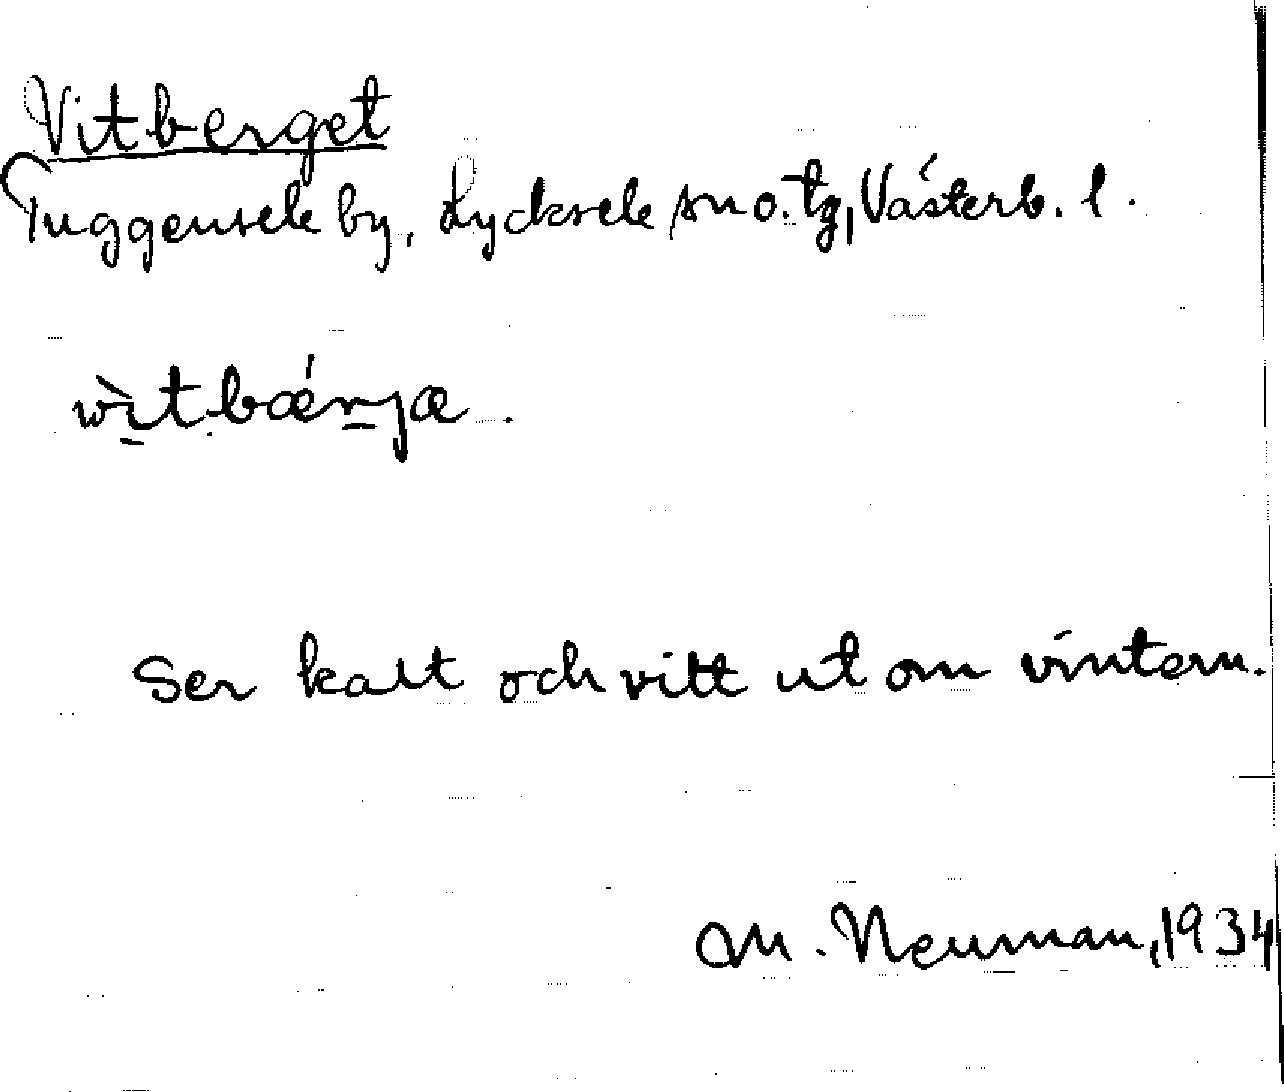 Vitberget
Tuggensele by, Lycksele sn o. tg, Västerb. l.
vìtbǽrja.
Ser kalt och vitt ut om vintern.
M. Neuman, 1934